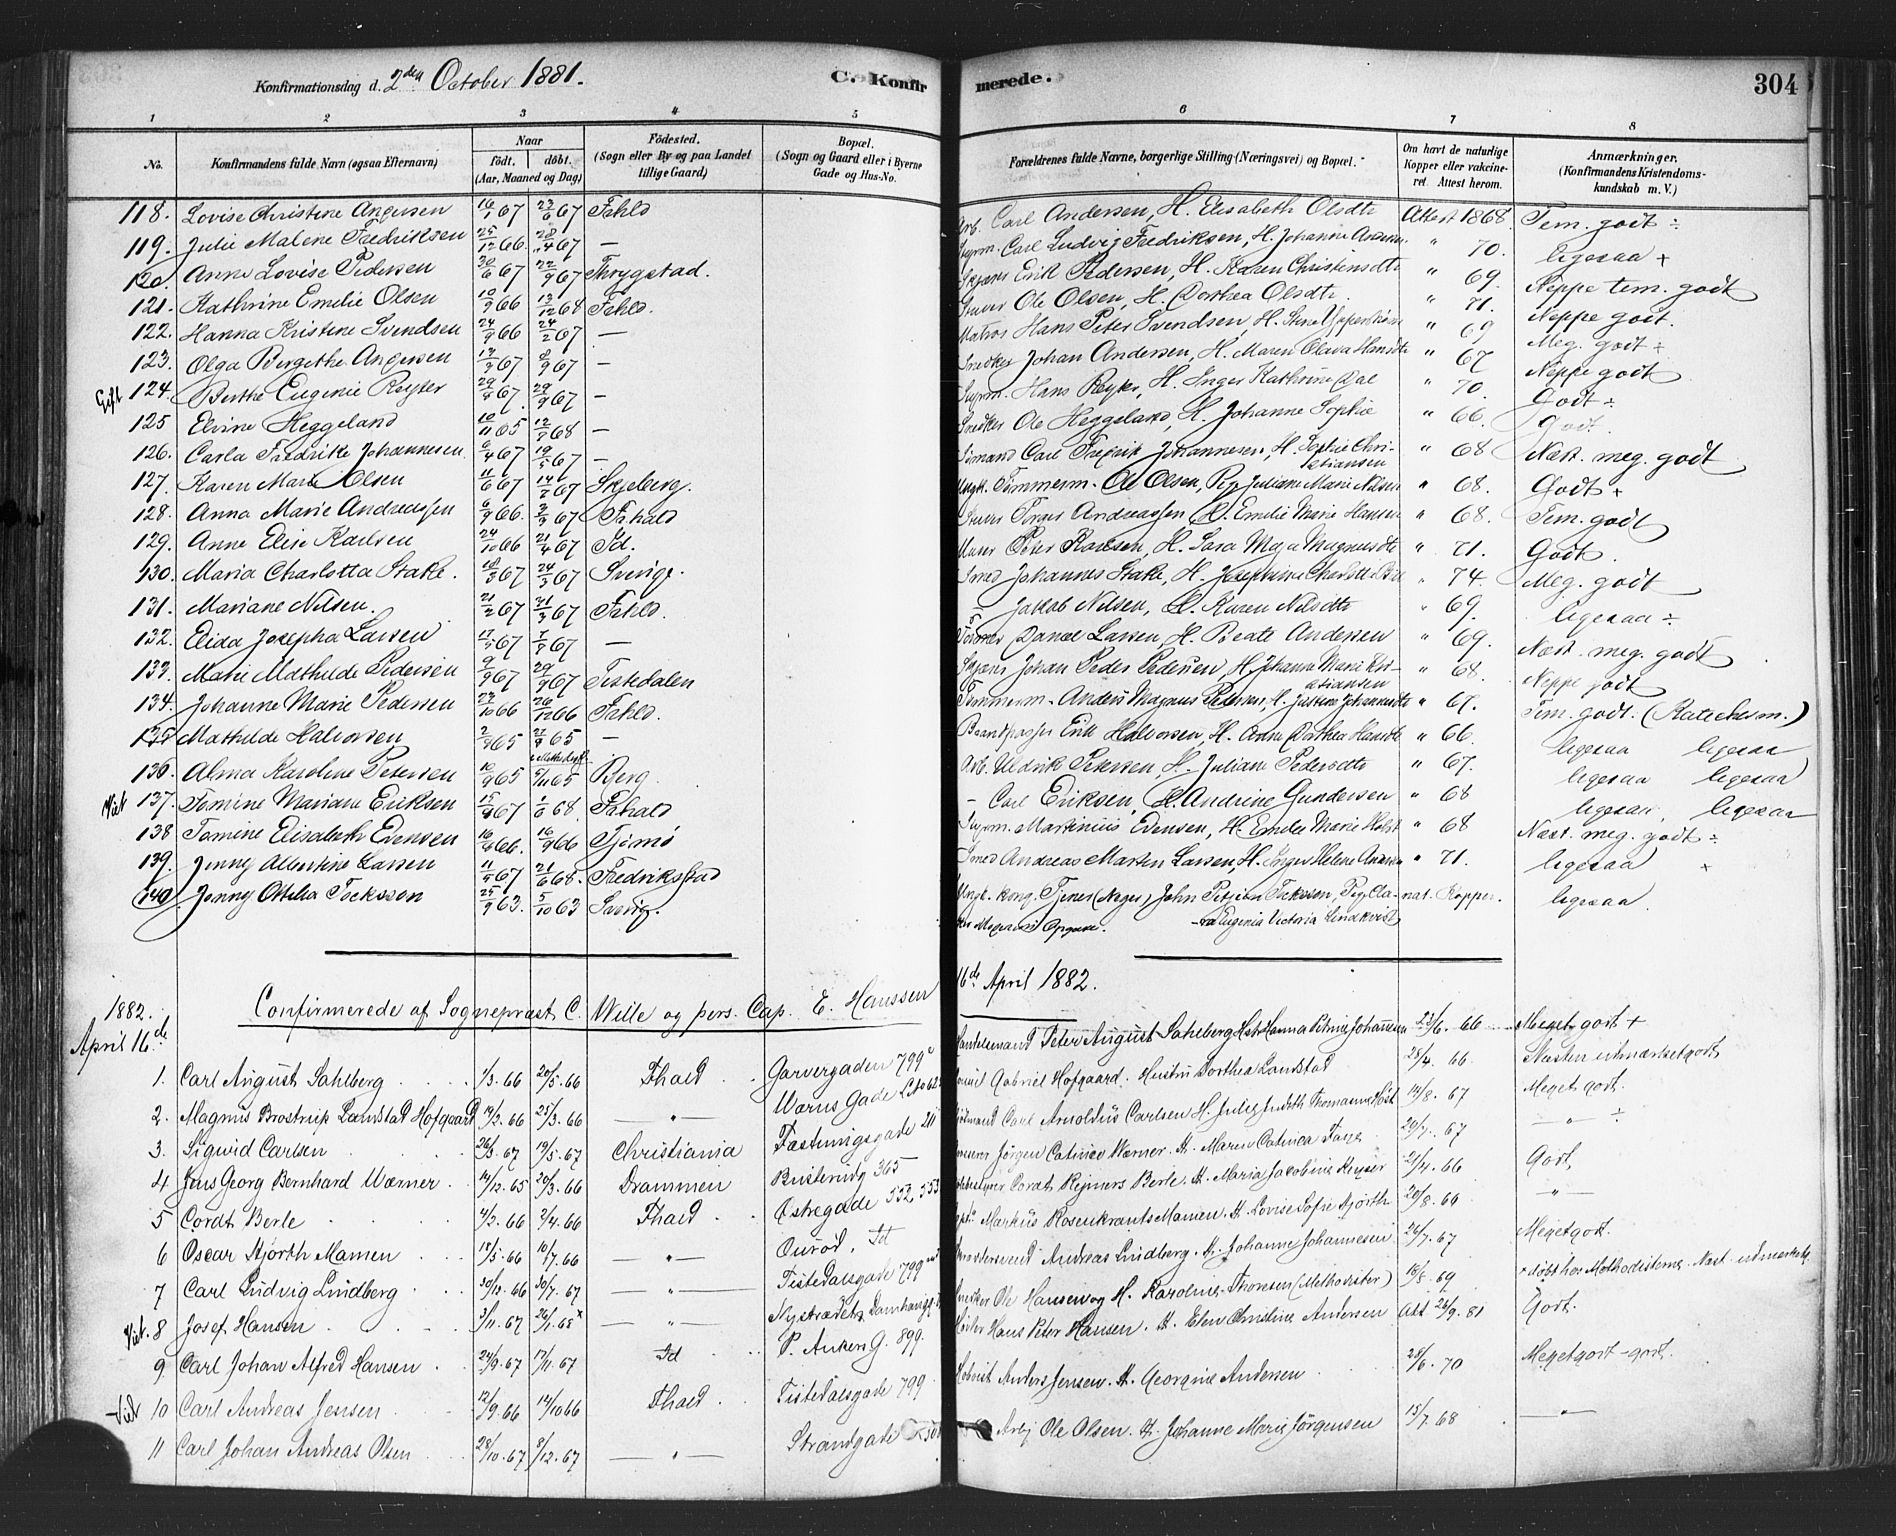 Konfirmationsdag d. 2den October 1881.
C. Konfirmerede.
304
1 2 3 4 5 6 7 8
No.
Konfirmandens fulde Navn (ogsaa Efternavn)
Naar
født. døbt.
(Aar, Maaned og Dag)
Födested.
(Sogn eller By og paa Landet
tillige Gaard)
Bopæl.
(Sogn og Gaard eller i Byerne
Gade og Hus-No.
Forældrenes fulde Navne, borgerlige Stilling (Næringsvei) og Bopæl.
Om havt de naturlige
Kopper eller vakcine-
ret. Attest herom.
Anmærkninger.
(Konfirmandens Kristendoms-
kundskab m. V.)
118. Lovise Christine Andersen 16/1 67 23/6 67 Fhld Arb. Carl Andersen, H. Elisabeth Olsdtr Attest 1868 Tem. godt ÷
119. Julie Malene Fredriksen 25/12 66 28/4 67 — Carl Ludvig Fredriksen, H. Johanne " 70. ligesaa +
120. Anne Lovise Pedersen 30/6 67 22/9 67 Thrygstad. Erik Pedersen, H. Karen Christensdtr " 69. Neppe tem. godt
121. Kathrine Emelie Olsen 10/9 66 13/12 68 Fhld. Ole Olsen, H. Dorthea Olsdtr. " 71. Neppe godt.
122. Hanna Kristine Svendsen 24/9 66 24/2 67 — Matros Hans Peter Svendsen, H. " 69 Meg. godt ÷
123. Olga Bergethe Andersen 67 67 — Snedker Johan Andersen, H. Maren Olava Hansdtr " 67 Neppe godt
Gift 124. Berthe Eugenie Reyter 67. 29/9 67 — Hans Reyter, H. Inger Kathrine Dal " 70. Godt ÷
125 Elvine Heggeland 10/11 65 68 — Snedker Ole Heggeland, H. Johanne Sophie " 66. Godt.
126. Carla Fredrikke Johannesen 67 19/5 67 — Sømand Carl Fredrik Johannesen, H. Sophie Chri-
stiansen " 68 Næst. meg. godt
127. Karen Marie Olsen 11/6 67 14/7 67 Skjeberg. Ungk. Tømmerm. Ole Olsen, Pige Juliane Marie Nilsen " 68. Godt +
128. Anna Marie Andreassen 6/9 66. 3/3 67 Fhald Torger Andreassen, H. Emelie Marie Hansen " 68. Tem. godt
129. Anne Elise Karlsen 24/10 66 21/4 67 Id. Murer Peter Karlsen, H. Sara Maja Magnusdtr " 71. Godt.
130. Maria Charlotta Stake. 67 24/3 67 Sverige. Smed Johannes Stake, H. Josephine Charlotte " 74. Meg. godt
131. Mariane Nilsen. 21/2 67 31/3 67 Fhld. Jakob Nilsen, H. Karen Nilsdtr " 69. ligesaa ÷
132. Elida Josepha Larsen 17/5 67 67 — Daniel Larsen, H. Beate Andersen " 69. Næst. meg. godt
133. Marie Mathilde Pedersen 67 29/9 67 Tistedalen Johan Peder Pedersen, H. Johanne Marie Kri-
stiansen " 68. Neppe godt
134. Johanne Marie Pedersen 23/10 66 26/12 66 Fhld. Tømmerm. Anders Magnus Pedersen, H. Justine Johannesdtr " 67. Tem. godt. (Katechism.)
135 Mathilde Halvorsen 65 65 — Erik Halvorsen, H. Anne Dorthea Hansdtr " 66. ligesaa ligesaa
136. Alma Karoline Petersen 16/9 65 5/11 65 Berg. Arb. Uldrik Petersen, H. Juliane Pedersdtr " 67. ligesaa ligesaa
Viet 137. Tomine Mariane Eriksen 15/9 67 1/6 68. Fhald — Carl Eriksen, H. Andrine Gundersen " 68 ligesaa, ligesaa
138 Tomine Elisabeth Evensen 66. 16/9 66 Tjømø Martinius Evensen, H. Emilie Marie Holst " 68 Næst. meg. godt ÷
139. Jenny Albertine Larsen 11/5 67 21/6 68. Fredrikstad Smed Andreas Marten Larsen, H. Inger Helene " 71. ligesaa +
140. Jenny Ottilia Tocksson 25/9 63. 5/10 63 Sverig. Ungk. kong. Tjener (Neger) John Tocksson, Pige Cla-
ra Eugenia Victoria Lindkvist nat. Kopper. ligesaa
Opgave.
1882.
April 16de
Confirmerede af Sognepræst C. Wille og pers. Cap. E. Hanssen 16de April 1882.
1. Carl August Sahlberg 1/3. 66 20/5. 66 Fhald Garvergaden 799 Handelsmand Peter August Sahlberg Hstr Hanna Petrine Johannesen 23/6. 66 Meget godt +
2. Magnus Brostrup Landstad Hofgaard 14/2. 66 25/3. 66 — " — Wærns Gade Gabriel Hofgaard. Hustru Dorthea Landstad 25/4. 66 Næsten udmærket godt
3. Sigwid Carlsen 26/3. 67 19/5. 67 Christiania Fæstningsgade 211 Carl Arnoldus Carlsen H. Julie Judith Thomasine Høst 14/8. 67 Meget godt.
4 Jens Georg Bernhard Wærner 14/12. 65 20/3. 66 Drammen 365 Jørgen Catinco Wærner. H. Maren Catinca Faye 29/7. 67 — " — ÷
5 Cordt Berle 4/2. 66 2/4. 66 Fhald Østregade 552, 553 Cordt Rejners Berle. H. Maria Jacobine Keyser 21/4. 66 Godt
6 Oscar Hjorth Mamen 18/5. 66 10/7. 66 — " — Ourød. Id Markus Rosenkrants Mamen. H. Lovise Sofie Hjorth 20/8. 66 — " —
7 Carl Ludvig Lindberg 30/12. 66 30/7. 67 — " — Tistedalsgade 799 Andreas Lindberg. H. Johanne Johannesen 26/7. 67 Meget godt.
Viet. 8 Josef Hansen 3/11. 67 26/1. 68 x — " — Nystrædet, Snedker Ole Hansen og H. Karoline Thoresen (Methodister) 16/8. 69 x døbt hos Methodisterne. Næst. udmærket
9 Carl Johan Alfred Hansen 24/9. 67 17/11. 67 Id P. Ankers G. 899. Hans Peter Hansen. H. Elen Christine Andersen Att 26/9. 81 Godt.
Viet 10 Carl Andreas Jensen 12/9. 66 14/10 66 Fhald Tistedalsgade 799 Anders Jensen. H. Georgine Andersen 25/6. 70 Meget godt - godt.
11 Carl Johan Andreas Olsen 28/10. 67 8/12. 67 — " — Strandgade Arb Ole Olsen. H. Johanne Marie Jörgensen 15/7. 68 — " —